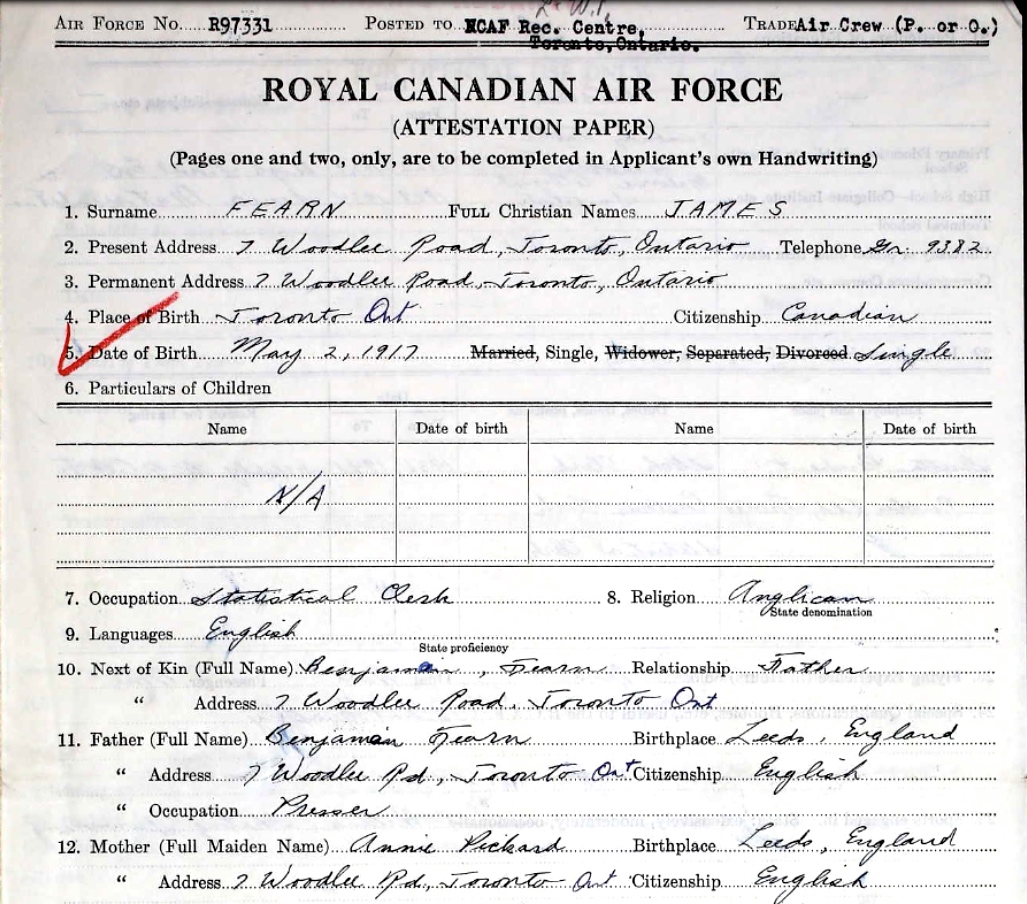 AIR FORCE NO. R97331 POSTED TO RCAF Rec. Centre, TRADE Air Crew (P. or O.)
Toronto, Ontario.
ROYAL CANADIAN AIR FORCE
(ATTESTATION PAPER)
(Pages one and two, only, are to be completed in Applicant's own Handwriting)
1. Surname FEARN FULL Christian Names JAMES
2. Present Address 7 Woodlee Road, Toronto, Ontario Telephone Gr. 9382
3. Permanent Address 7 Woodlee Road, Toronto, Ontario
4. Place of Birth Toronto Ont Citizenship Canadian
5. Date of Birth May 2, 1917 Married, Single, Widower, Separated, Divorced Single
6. Particulars of Children
Name Date of birth Name Date of birth
N/A
7. Occupation Statistical Clerk 8. Religion Anglican
State denomination
9. Languages English
State proficiency
10. Next of Kin (Full Name) Benjamin, Fearn Relationship Father
" Address 7 Woodlee Road, Toronto Ont
11. Father (Full Name) Benjamin Fearn Birthplace Leeds, England
" Address 7 Woodlee Rd, Toronto Ont Citizenship English
" Occupation Presser
12. Mother (Full Maiden Name) Annie Pickard Birthplace Leeds, England
" Address 7 Woodlee Rd, Toronto Ont Citizenship English